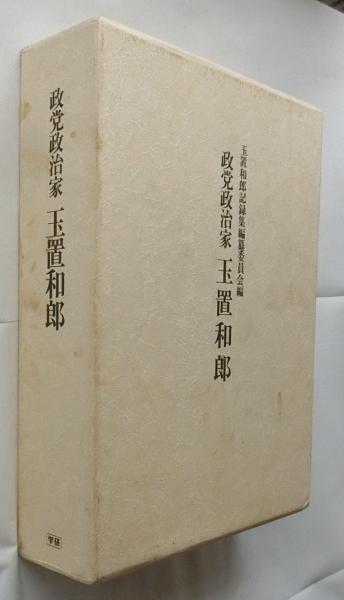 玉置和郎記録集編纂委員会編
政党政治家 玉置和郎
政党政治家 玉置和郎
学研